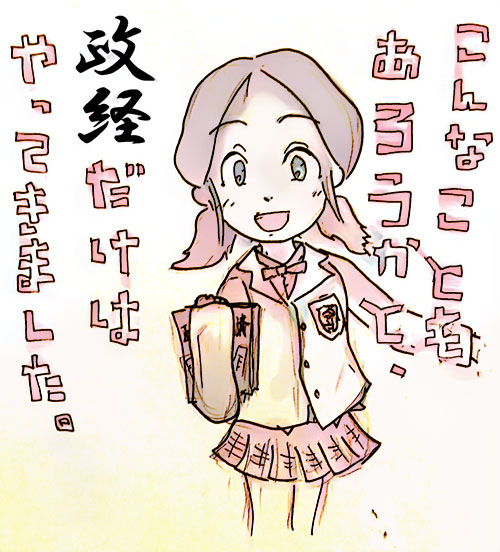 こんなことも
あろうかと、
政経だけは
やってきました。